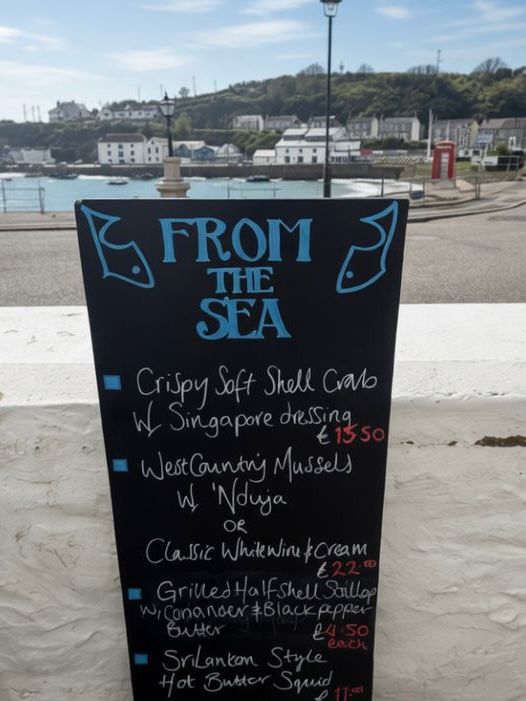 FROM
THE
SEA
Crispy Soft Shell Crab
W/ Singapore dressing
£15.50
West Country Mussels
W/ 'Nduja
OR
Classic White Wine & Cream
£22.00
Grilled Half Shell Scallop
W/ Coriander & Black pepper
Butter £4.50
each
Sri Lankan Style
Hot Butter Squid
£11.00